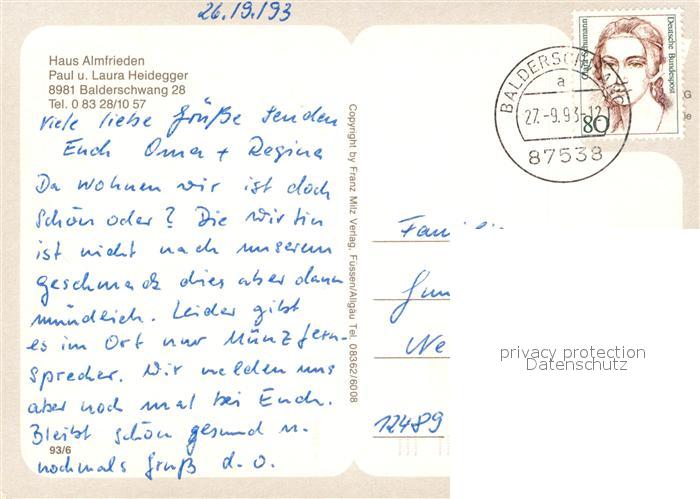 26.19.93
Haus Almfrieden
Paul u. Laura Heidegger
8981 Balderschwang 28
Tel. 0 83 28/10 57
viele liebe Grüße senden
Euch Oma + Regina
Da wohnen wir ist doch
schön oder? Die Wirtin
ist nicht nach unserem
geschmack dies aber dann
mündlich. Leider gibt
es im Ort nur Münzfern-
sprecher. Wir melden uns
aber noch mal bei Euch.
Bleibt schön gesund u.
nochmals Gruß d. O.
93/6
Copyright by Franz Milz Verlag, Füssen/Allgäu Tel. 08362/6008
Deutsche Bundespost
80
BALDERSCHWANG
a
27.-9.93-12
87538
Fami
Ne
12489
privacy protection
Datenschutz